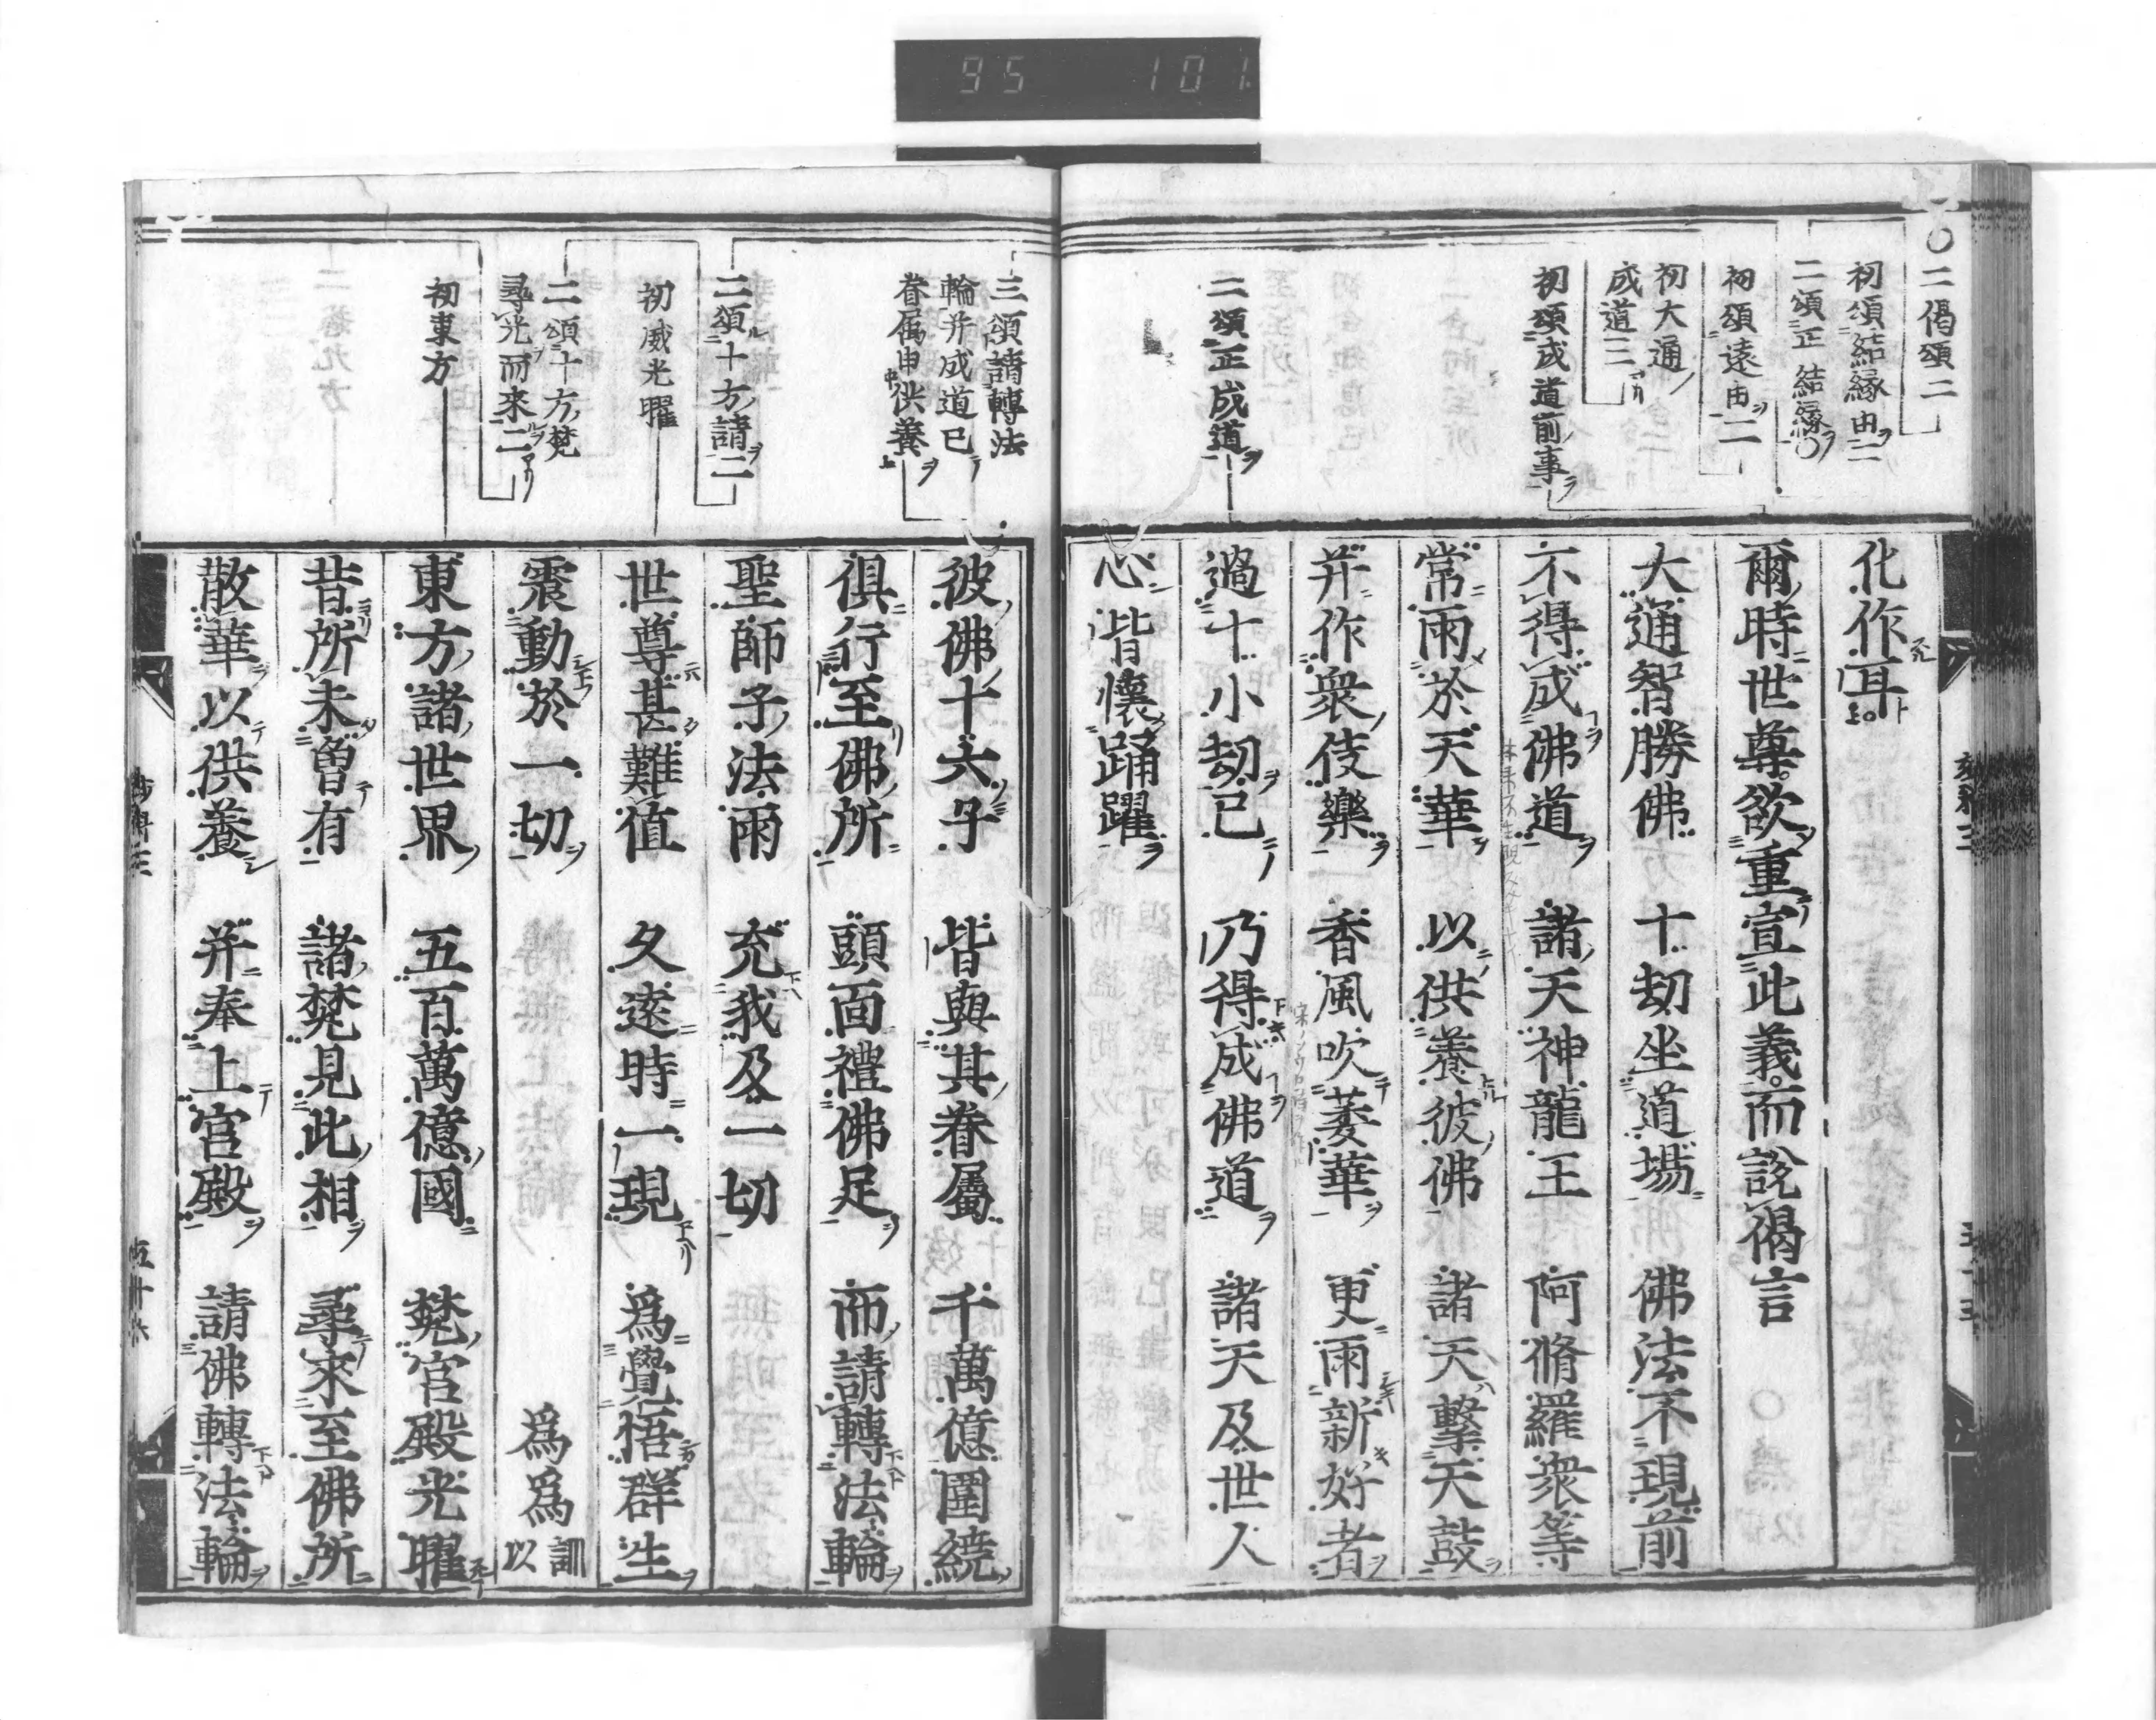 95 101
〇二偈頌二
初頌結縁由二
二頌正結縁〇
初頌遠由二
初大通
成道三
初頌成道前事
二頌正成道
化作耳
爾時世尊欲重宣此義而說偈言
大通智勝佛 十劫坐道場 佛法不現前
不得成佛道 諸天神龍王 阿脩羅衆等
常雨於天華 以供養彼佛 諸天擊天鼓
并作衆伎樂 香風吹萎華 更雨新好者
過十小劫已 乃得成佛道 諸天及世人
心皆懷踊躍
三頌請轉法
輪并成道已
眷属申供養
二頌十方請二
初威光曜
二頌十方梵
尋光而來二
初東方
彼佛十六子 皆與其眷屬 千萬億圍繞
俱行至佛所 頭面禮佛足 而請轉法輪
聖師子法雨 充我及一切
世尊甚難值 久遠時一現 爲覺悟群生
震動於一切 爲爲 訓以
東方諸世界 五百萬億國 梵宮殿光曜
昔所未曾有 諸梵見此相 尋來至佛所
散華以供養 并奉上宮殿 請佛轉法輪
五十六